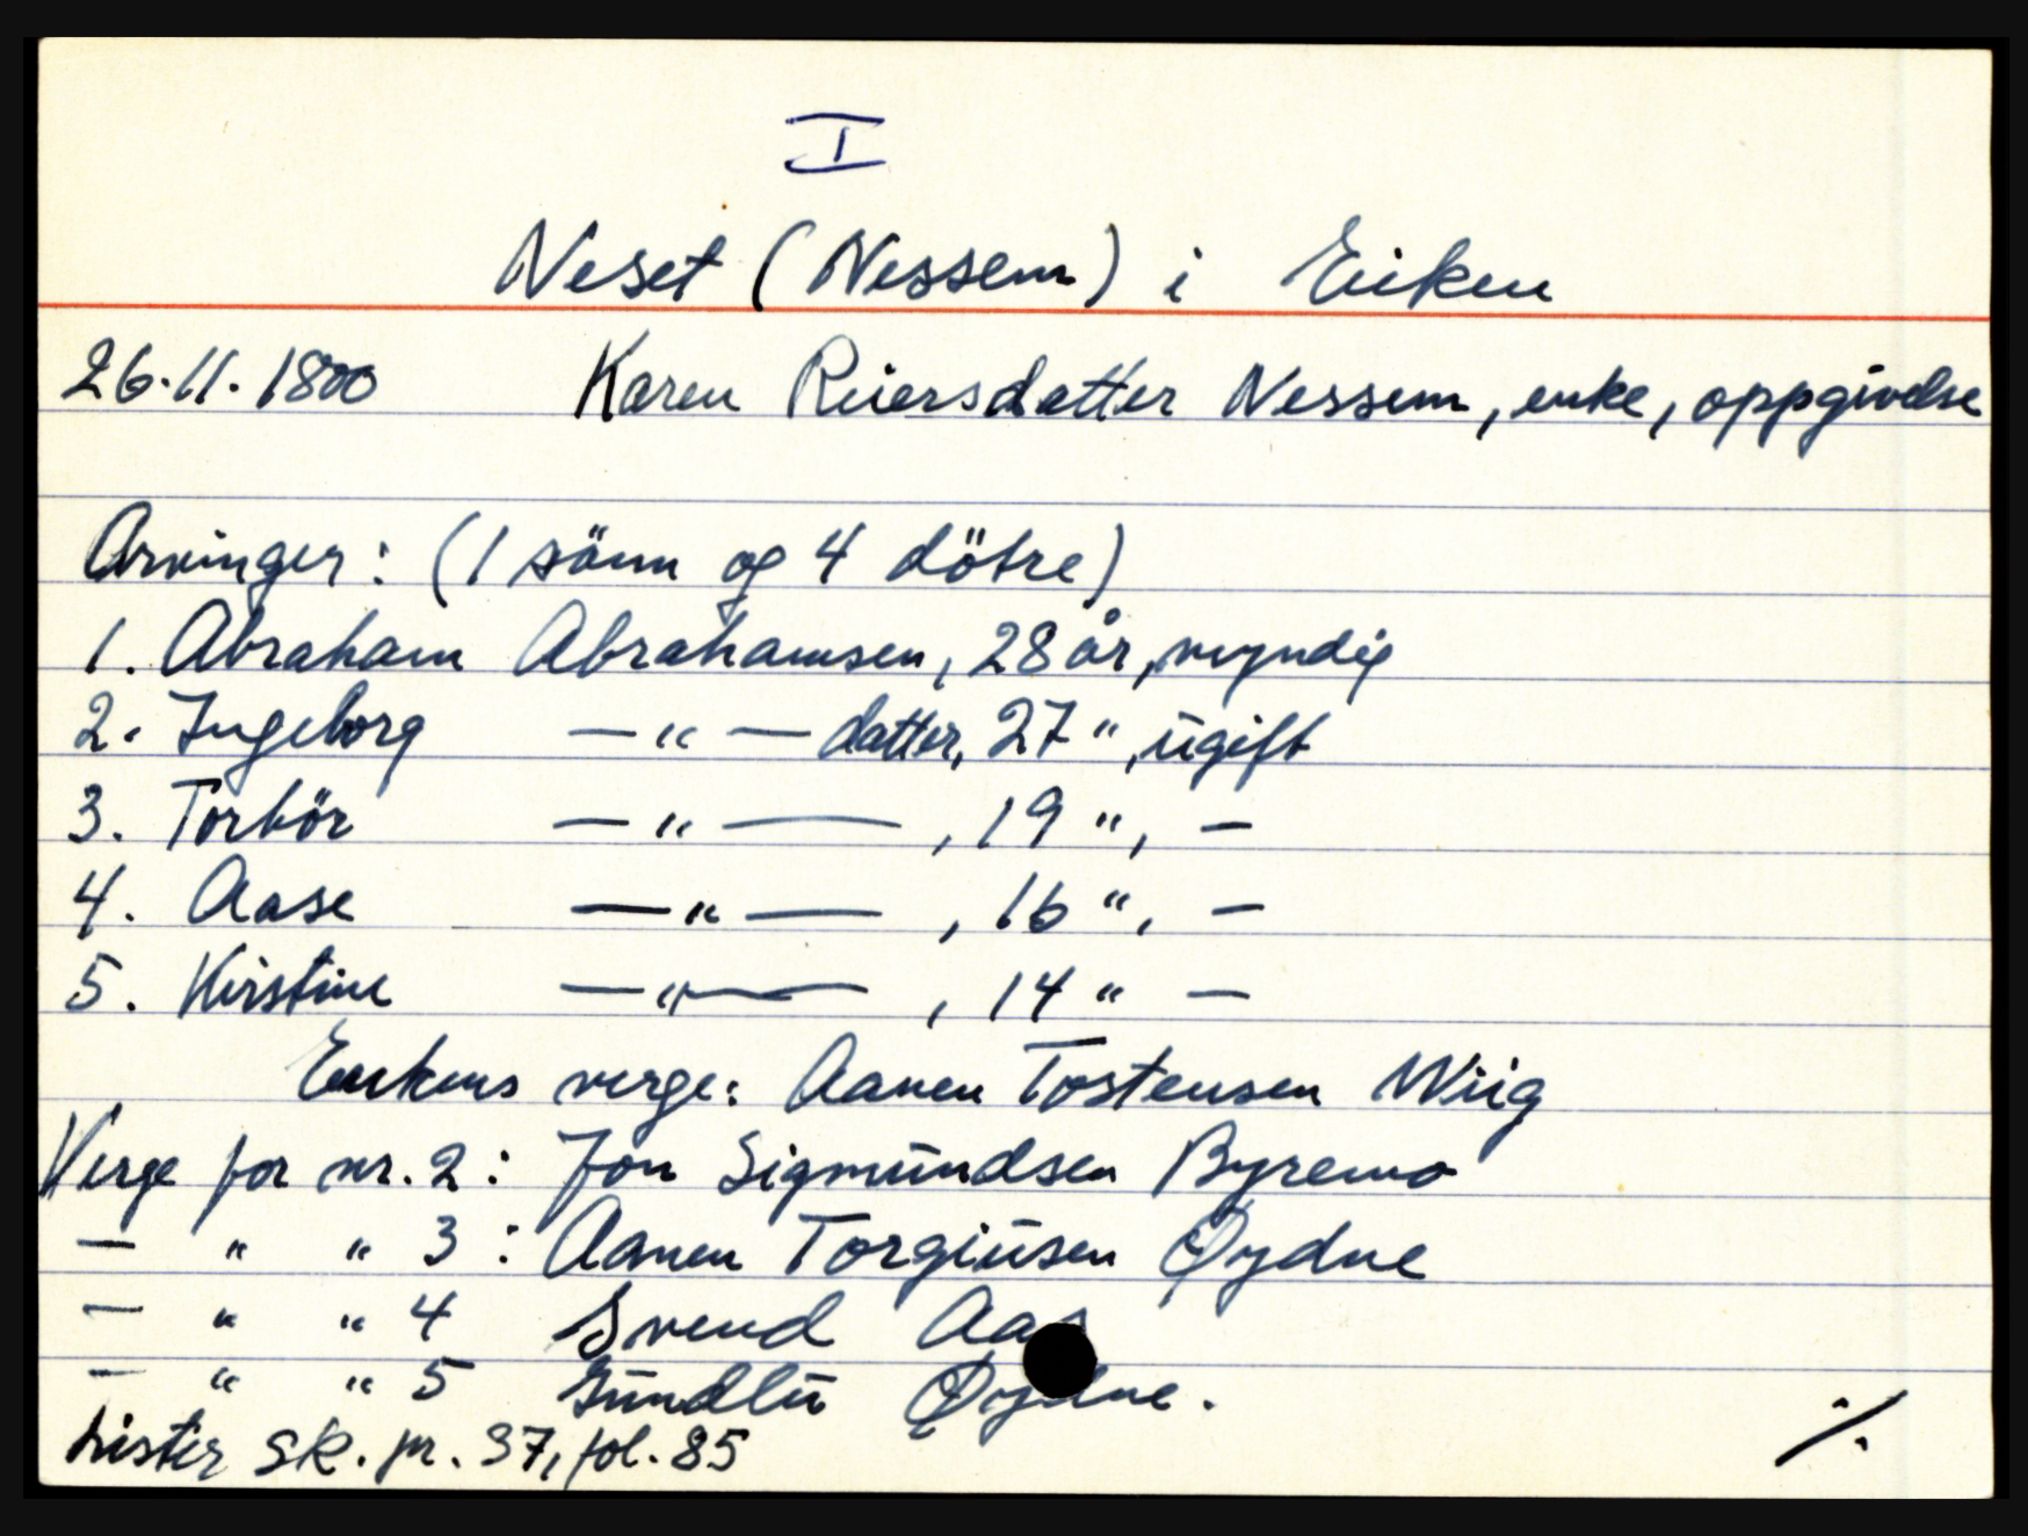 I
Neset (Nessem) i Eiken
26.11.1800 Karen Reiersdatter Nessem, enke, oppgivelse
Arvinger: (1 sönn og 4 dötre)
1. Abraham Abrahamsen, 28 år, myndig
2. Ingeborg —"— datter, 27 ", ugift
3. Torbör —"—, 19 ", —
4. Aase —"—, 16 ", —
5. Kirstine —"—, 14 " —
Enkens verge: Aanen Tostensen Wiig
Verge for nr. 2: Jon Sigmundsen Byremo
— " " 3: Aanen Torgiusen Øydne
— " " 4 Svend Aas
— " " 5 Gundlu Øydne.
Lister sk. pr. 37, fol. 85
./.